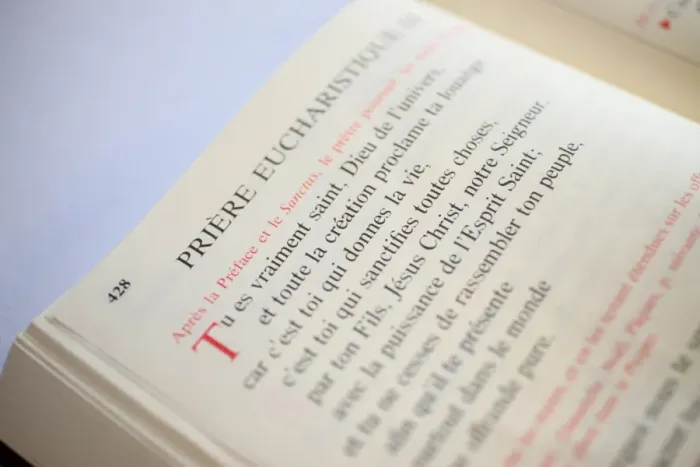 428
PRIÈRE EUCHARISTIQUE III
Après la Préface et le Sanctus, le prêtre poursuit, les mains
Tu es vraiment saint, Dieu de l'univers,
et toute la création proclame ta louange
car c'est toi qui donnes la vie,
c'est toi qui sanctifies toutes choses,
par ton Fils, Jésus Christ, notre Seigneur,
avec la puissance de l'Esprit Saint;
et tu ne cesses de rassembler ton peuple,
afin qu'il te présente
partout dans le monde
une offrande pure.
étendues sur les